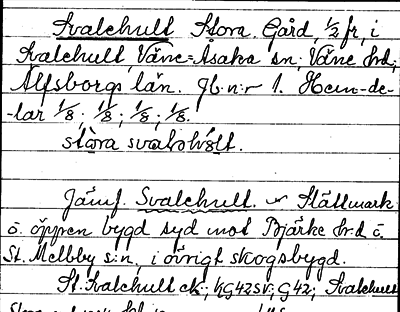 Svalehult Stora. Gård, 1/2 fr, i
Svalehult, Väne-Åsaka sn; Väne hd;
Älfsborgs län. Jb.n:r 1. Hem-de-
-lar 1/8; 1/8; 1/8; 1/8.
stora svaləhult.
Jämf. Svalehult. ~ Slättmark
o. öppen bygd syd mot Bjärke hd o.
St. Mellby s:n, i övrigt skogsbygd.
St. Svalehult ek; HG42SV; G42; Svalehult